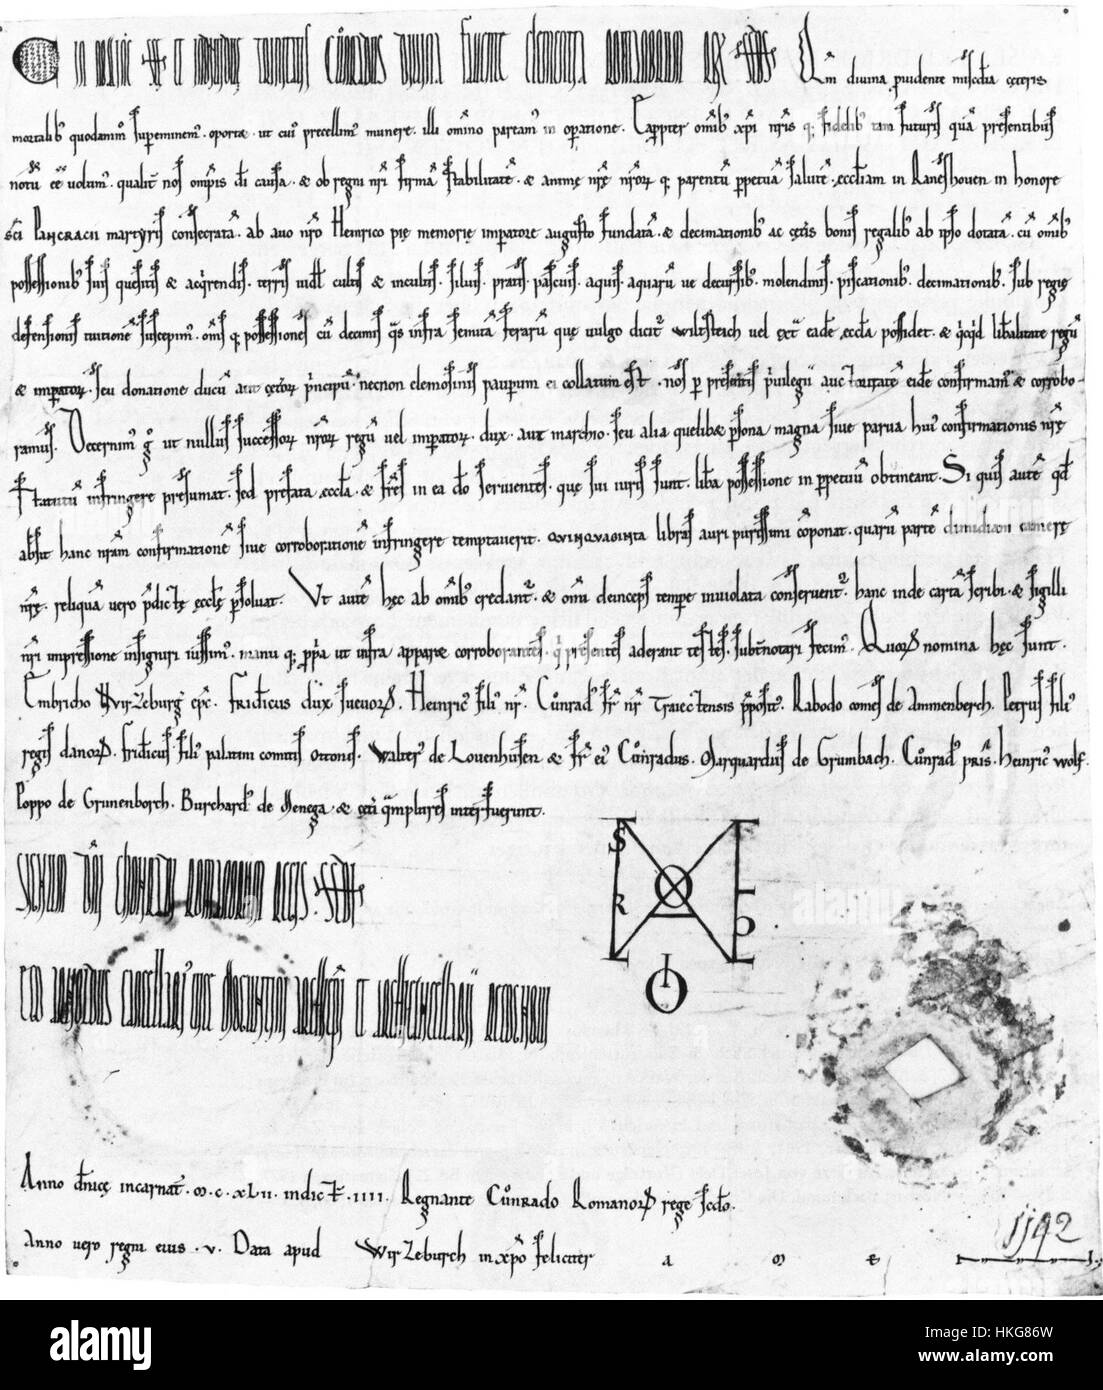 C In nomine sanctę et individuę trinitatis Cůnradus divina favente clementia romanorum rex secundus Qm̄ divina p̱uidente misc̄dia cęteris
mortalib' quodam̄m̊ sup̱eminem'. oportet. ut cui' precellim' munere. illi om̄ino paream' in op̱atione. omib' xp̄i nr̄is q; fidelib' tam futuris quā presentibus
notū eē uolum'. qualit̄ nos om̄pis dī causa. & ob regni nr̄i firmā stabilitatē. & animę nrę nr̄orꝝ q; parentū p̱petuā salutē. ęccl̄iam in Raneshouen in honore
sc̄i Pancracii martyris consecratā. ab auo nr̄o Heinrico pię memorię imperatore augusto fundatā. & decimationib' ac cęt̄is bonis regalib' ab ip̄so dotatā. cū om̄ib'
possessionib' suis quesitis & acq̄rendis. terris uidel̄ cultis & incultis. siluis. pratis. pascuis. aquis. aquarū ue decursib'. molendinis. piscationib'. decimationib'. sub regię
defensionis tuitionē suscepim'. om̄s q; possessiones cū decimis q̄s infra semitā ferarū quę uulgo dicit̄ wiltsteich uel ext̄ eadē ęccl̄a possidet. & q̄cq̄d lib̄alitate regū
& imp̱atorꝝ. seu donatione ducū aut cęt̄orꝝ p̄ncipū. necnon elemosinis paup̱um ei collatum est. nos p̱ presentis p̄uilegii auctoritatē eidē confirmam' & corrobo-
ramus. Decernim' g̊ ut nullus successorꝝ nr̄orꝝ regū uel imp̱atorꝝ. dux. aut marchio. seu alia quelibet p̱sona magna siue parua hui' confirmationis nr̄ę
statutū infringere presumat. sed prefata ęccl̄a. & fr̄es in ea dō seruientes. quę sui iuris sunt. lib̄a possessione in p̱petuū obtineant. Si quis autē qd̄
absit hanc nr̄am confirmationē siue corroborationē infringere temptauerit. quinquaginta libras auri purissimi cōponat. quarū partē dimidiam camerę
nr̄ę. reliquā uero p̄dictę ęccl̄ę p̱soluat. Ut autē hęc ab om̄ib' credant̄. & om̄i deinceps tempe inuiolata conseruent̄. hanc inde cartā scribi. & sigilli
nr̄i impressione insigniri iussim'. manu q; pp̄ria ut infra apparet corroborantes. q̄ presentes aderant testes. subt̄notari fecim'. Quorꝝ nomina hęc sunt.
Embricho Wirzeburḡ ep̄c. Frid̄icus dux sueuorꝝ. Heinric' fili' nr̄. Cůnrad' fr̄ nr̄ Traiectensis p̄posit'. Rabodo comes de Ammenberch. Petrus fili'
regis danorꝝ. frid̄icus fili' palatini comitis ottonis. Walter' de Louenhusen & fr̄ ei' Cůnradus. Marquardus de Grumbach. Cůnrad' pris̄. Heinric' wolf.
Poppo de Grunenborch. Burchard' de Menega. & cęt̄i q̄mplures interfuerunt.
Signum domni Chonradi romanorum regis. secundi
Ego Arnoldus cancellarius vice Maguntini archiepiscopi et archicancellarii recognovi
S R T D O I
Anno dn̄icę incarnat̄. m. c. xLii. indict̄. iiii. Regnante Cůnrado Romanorꝝ rege scd̄o.
Anno uero regni eius. v. Data apud Wirzeburch in xp̄o feliciter a m e n
1142
alamy
Image ID: HKG86W
www.alamy.com